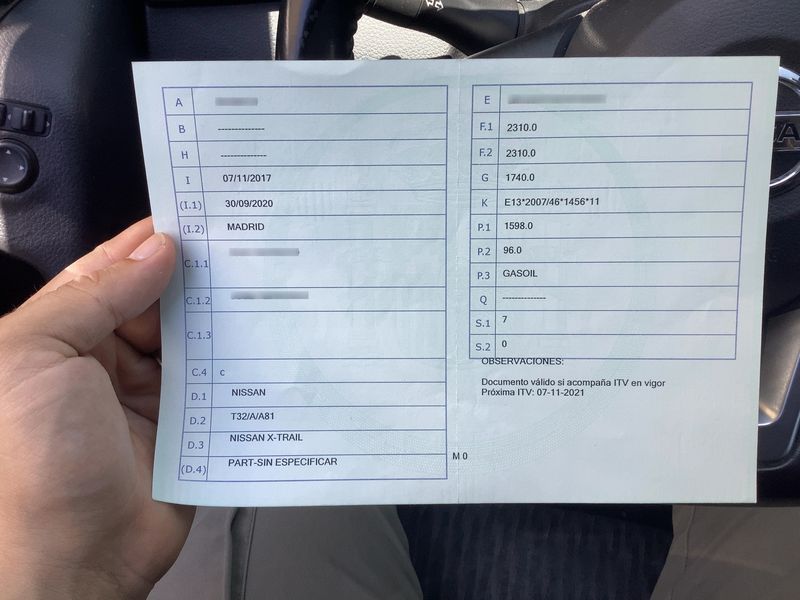 A
B --------------
H --------------
I 07/11/2017
(I.1) 30/09/2020
(I.2) MADRID
C.1.1
C.1.2
C.1.3
C.4 c
D.1 NISSAN
D.2 T32/A/A81
D.3 NISSAN X-TRAIL
(D.4) PART-SIN ESPECIFICAR
E
F.1 2310.0
F.2 2310.0
G 1740.0
K E13*2007/46*1456*11
P.1 1598.0
P.2 96.0
P.3 GASOIL
Q -------------
S.1 7
S.2 0
OBSERVACIONES:
Documento válido si acompaña ITV en vigor
Próxima ITV: 07-11-2021
M 0